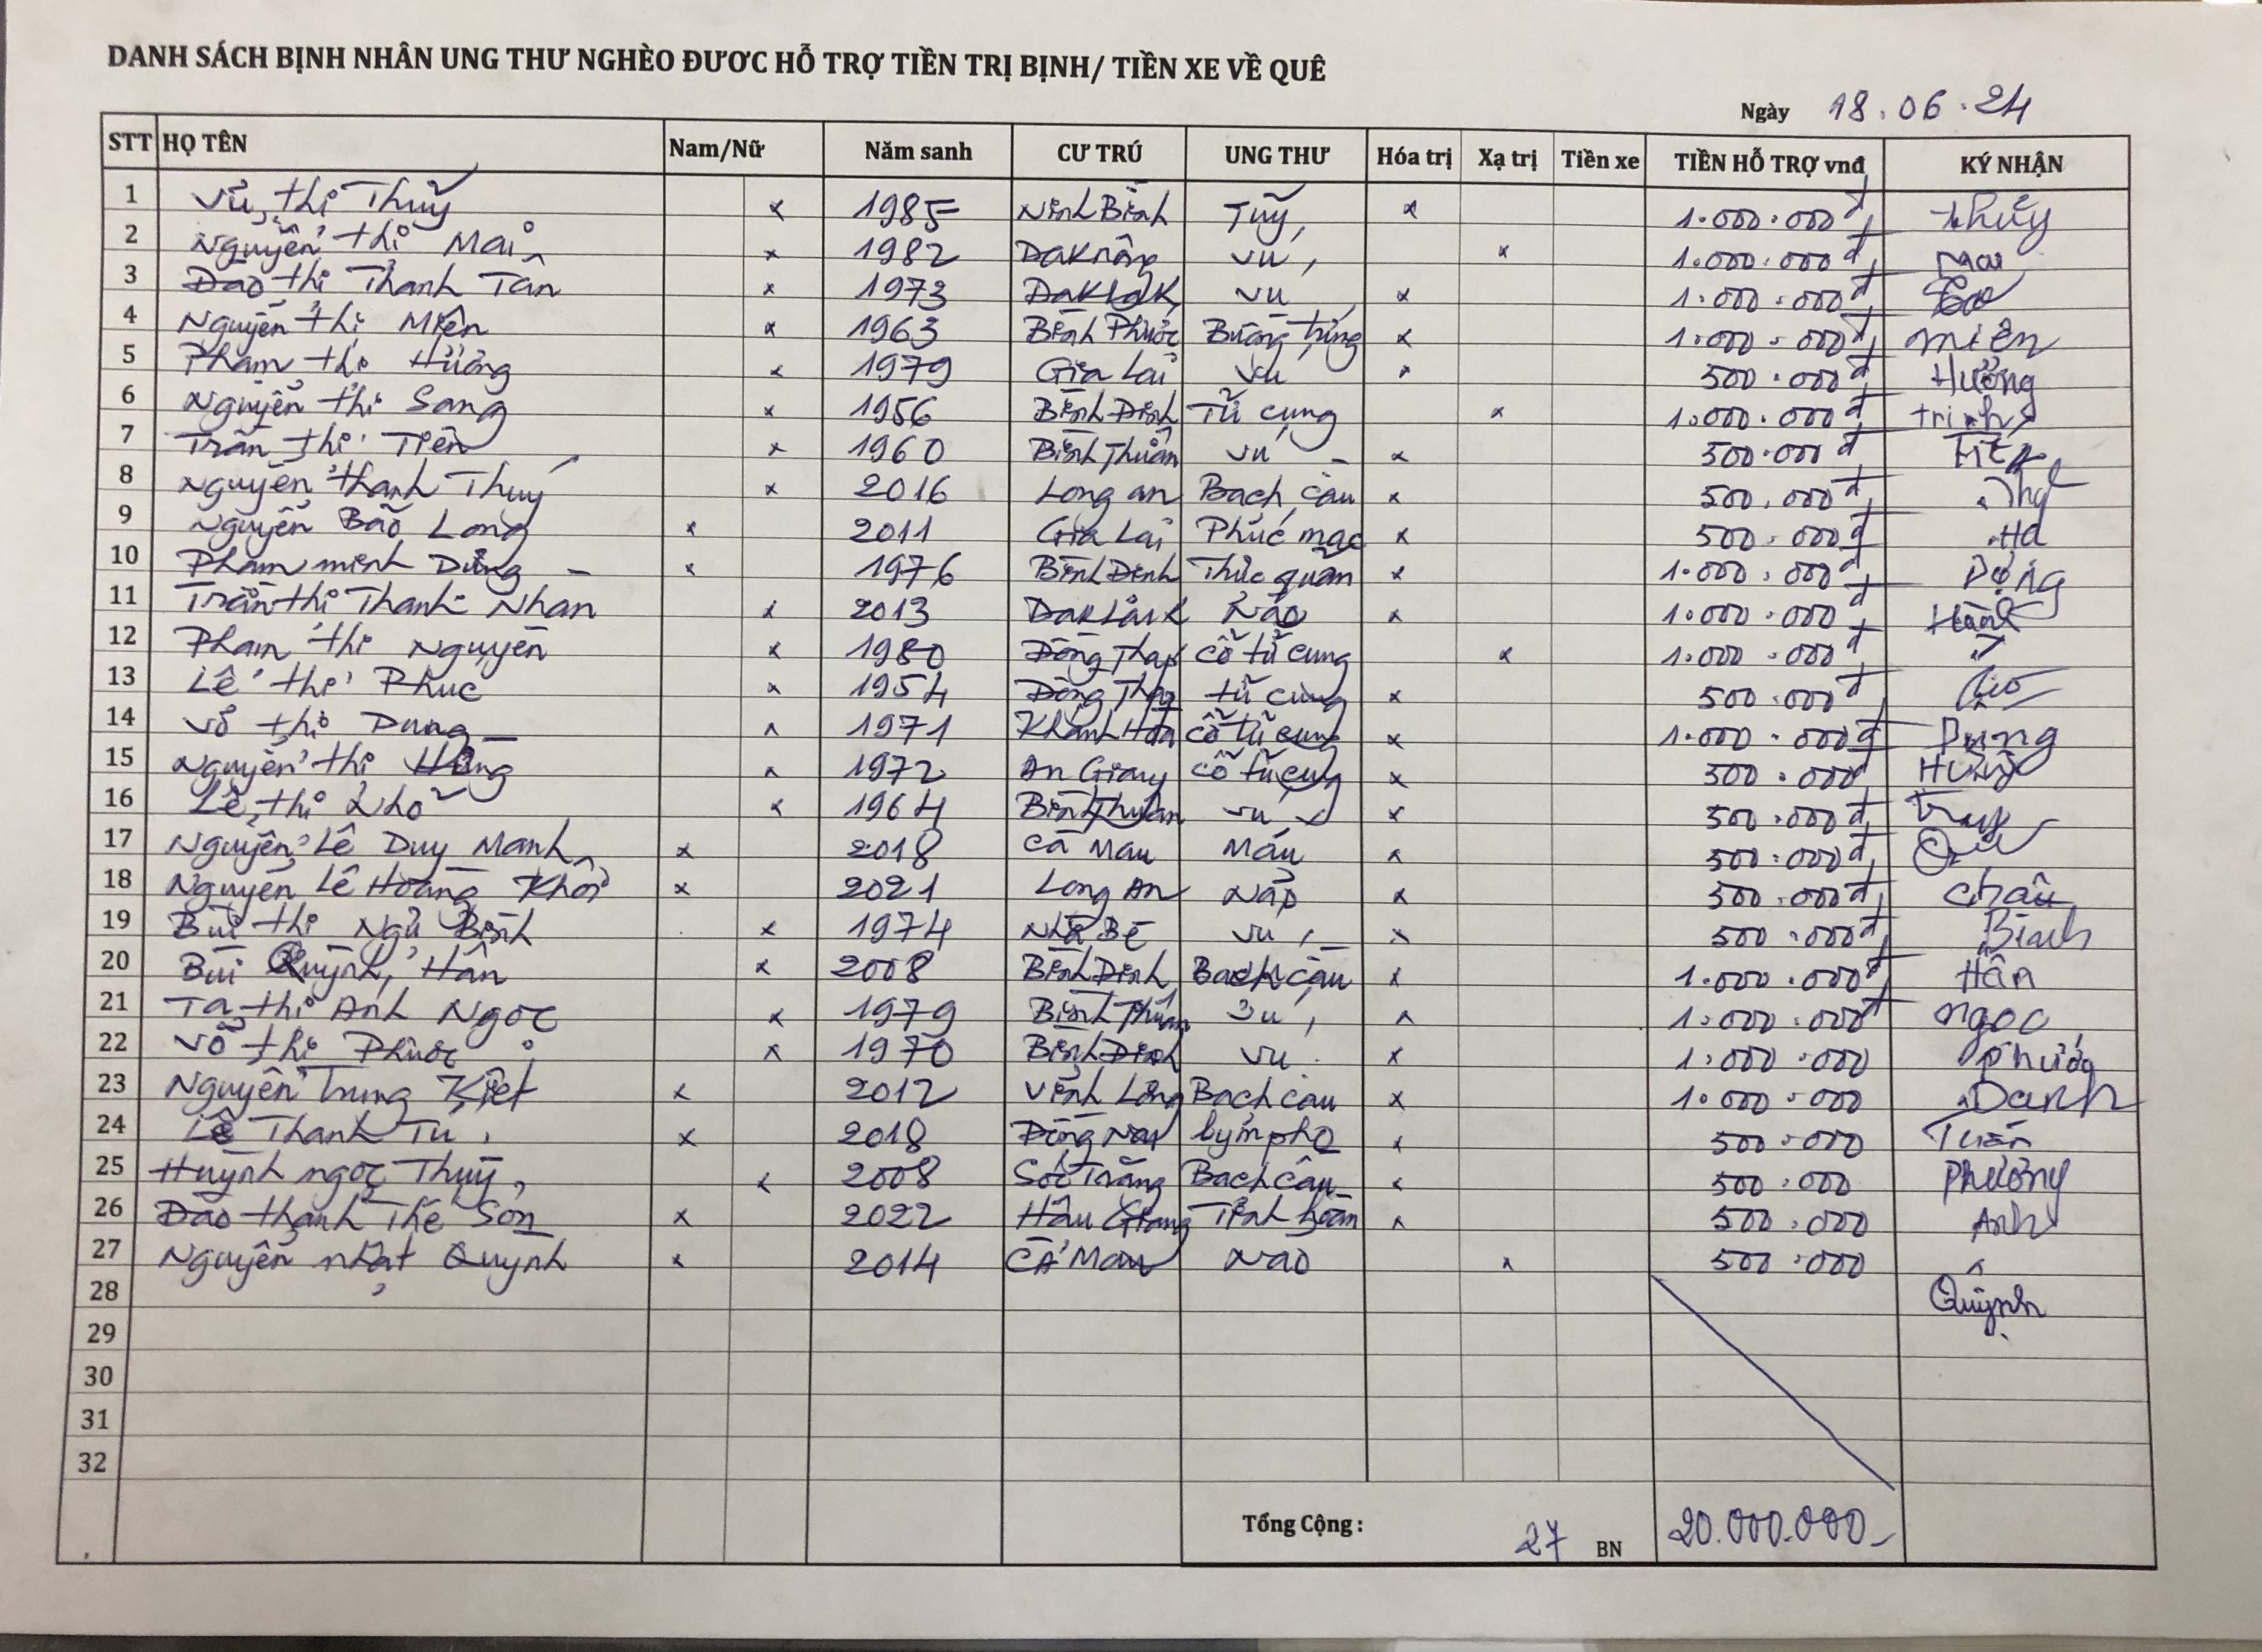 DANH SÁCH BỊNH NHÂN UNG THƯ NGHÈO ĐƯƠC HỖ TRỢ TIỀN TRỊ BỊNH/ TIỀN XE VỀ QUÊ
Ngày 18.06.24
STT HỌ TÊN Nam/Nữ Năm sanh CƯ TRÚ UNG THƯ Hóa trị Xạ trị Tiền xe TIỀN HỖ TRỢ vnđ KÝ NHẬN
1 Vũ thị Thủy x 1985 Ninh Bình Tụy x 1.000.000đ thủy
2 Nguyễn thị Mai x 1982 Dak nông vú x 1.000.000đ Mai
3 Đào thị Thanh Tân x 1973 Dak Lak vú x 1.000.000đ
4 Nguyễn thị Miên x 1963 Bình Phước Buồng trứng x 1.000.000đ miên
5 Phạm thị Hưởng x 1979 Gia Lai vú x 500.000đ Hưởng
6 Nguyễn thị Sang x 1956 Bình Định Tử cung x 1.000.000đ trinh
7 Trần thị Tiên x 1960 Bình Thuận vú x 500.000đ
8 Nguyễn thanh Thuý x 2016 Long an Bạch cầu x 500.000đ
9 Nguyễn Bảo Long x 2011 Gia Lai Phúc mạc x 500.000đ Hà
10 Phạm minh Dũng x 1976 Bình Định Thực quản x 1.000.000đ Dũng
11 Trần thị Thanh Nhàn x 2013 Dak Lăk Não x 1.000.000đ
12 Phạm thị Nguyên x 1980 Đồng Tháp cổ tử cung x 1.000.000đ
13 Lê thị Phúc x 1954 Đồng Tháp tử cung x 500.000đ
14 Võ thị Dung x 1971 Khánh Hòa cổ tử cung x 1.000.000đ Dung
15 Nguyễn thị Hồng x 1972 An Giang cổ tử cung x 500.000đ
16 Lê thị Nhỏ x 1964 Bình Thuận vú x 500.000đ
17 Nguyễn Lê Duy Mạnh x 2018 Cà Mau Máu x 500.000đ
18 Nguyễn Lê Hoàng Khôi x 2021 Long An Não x 500.000đ Châu
19 Bùi thị Ngữ Bình x 1974 Nhà Bè vú x 500.000đ Bình
20 Bùi Quỳnh Hân x 2008 Bình Định Bạch cầu x 1.000.000đ Hân
21 Tạ thị Ánh Ngọc x 1979 Bình Thuận vú x 1.000.000đ ngọc
22 Võ thị Phước x 1970 Bình Định vú x 1.000.000 phước
23 Nguyễn Trung Kiệt x 2012 Vĩnh Long Bạch cầu x 1.000.000 Danh
24 Lê Thanh Tú x 2018 Đồng Nai lympho x 500.000 Tuấn
25 Huỳnh ngọc Thụy x 2008 Sóc Trăng Bạch cầu x 500.000 Phượng
26 Đào thanh Thế Sơn x 2022 Hậu Giang Tinh hoàn x 500.000 Anh
27 Nguyễn nhật Quỳnh x 2014 Cà Mau Não x 500.000
28 Quỳnh
29
30
31
32
Tổng Cộng : 27 BN 20.000.000